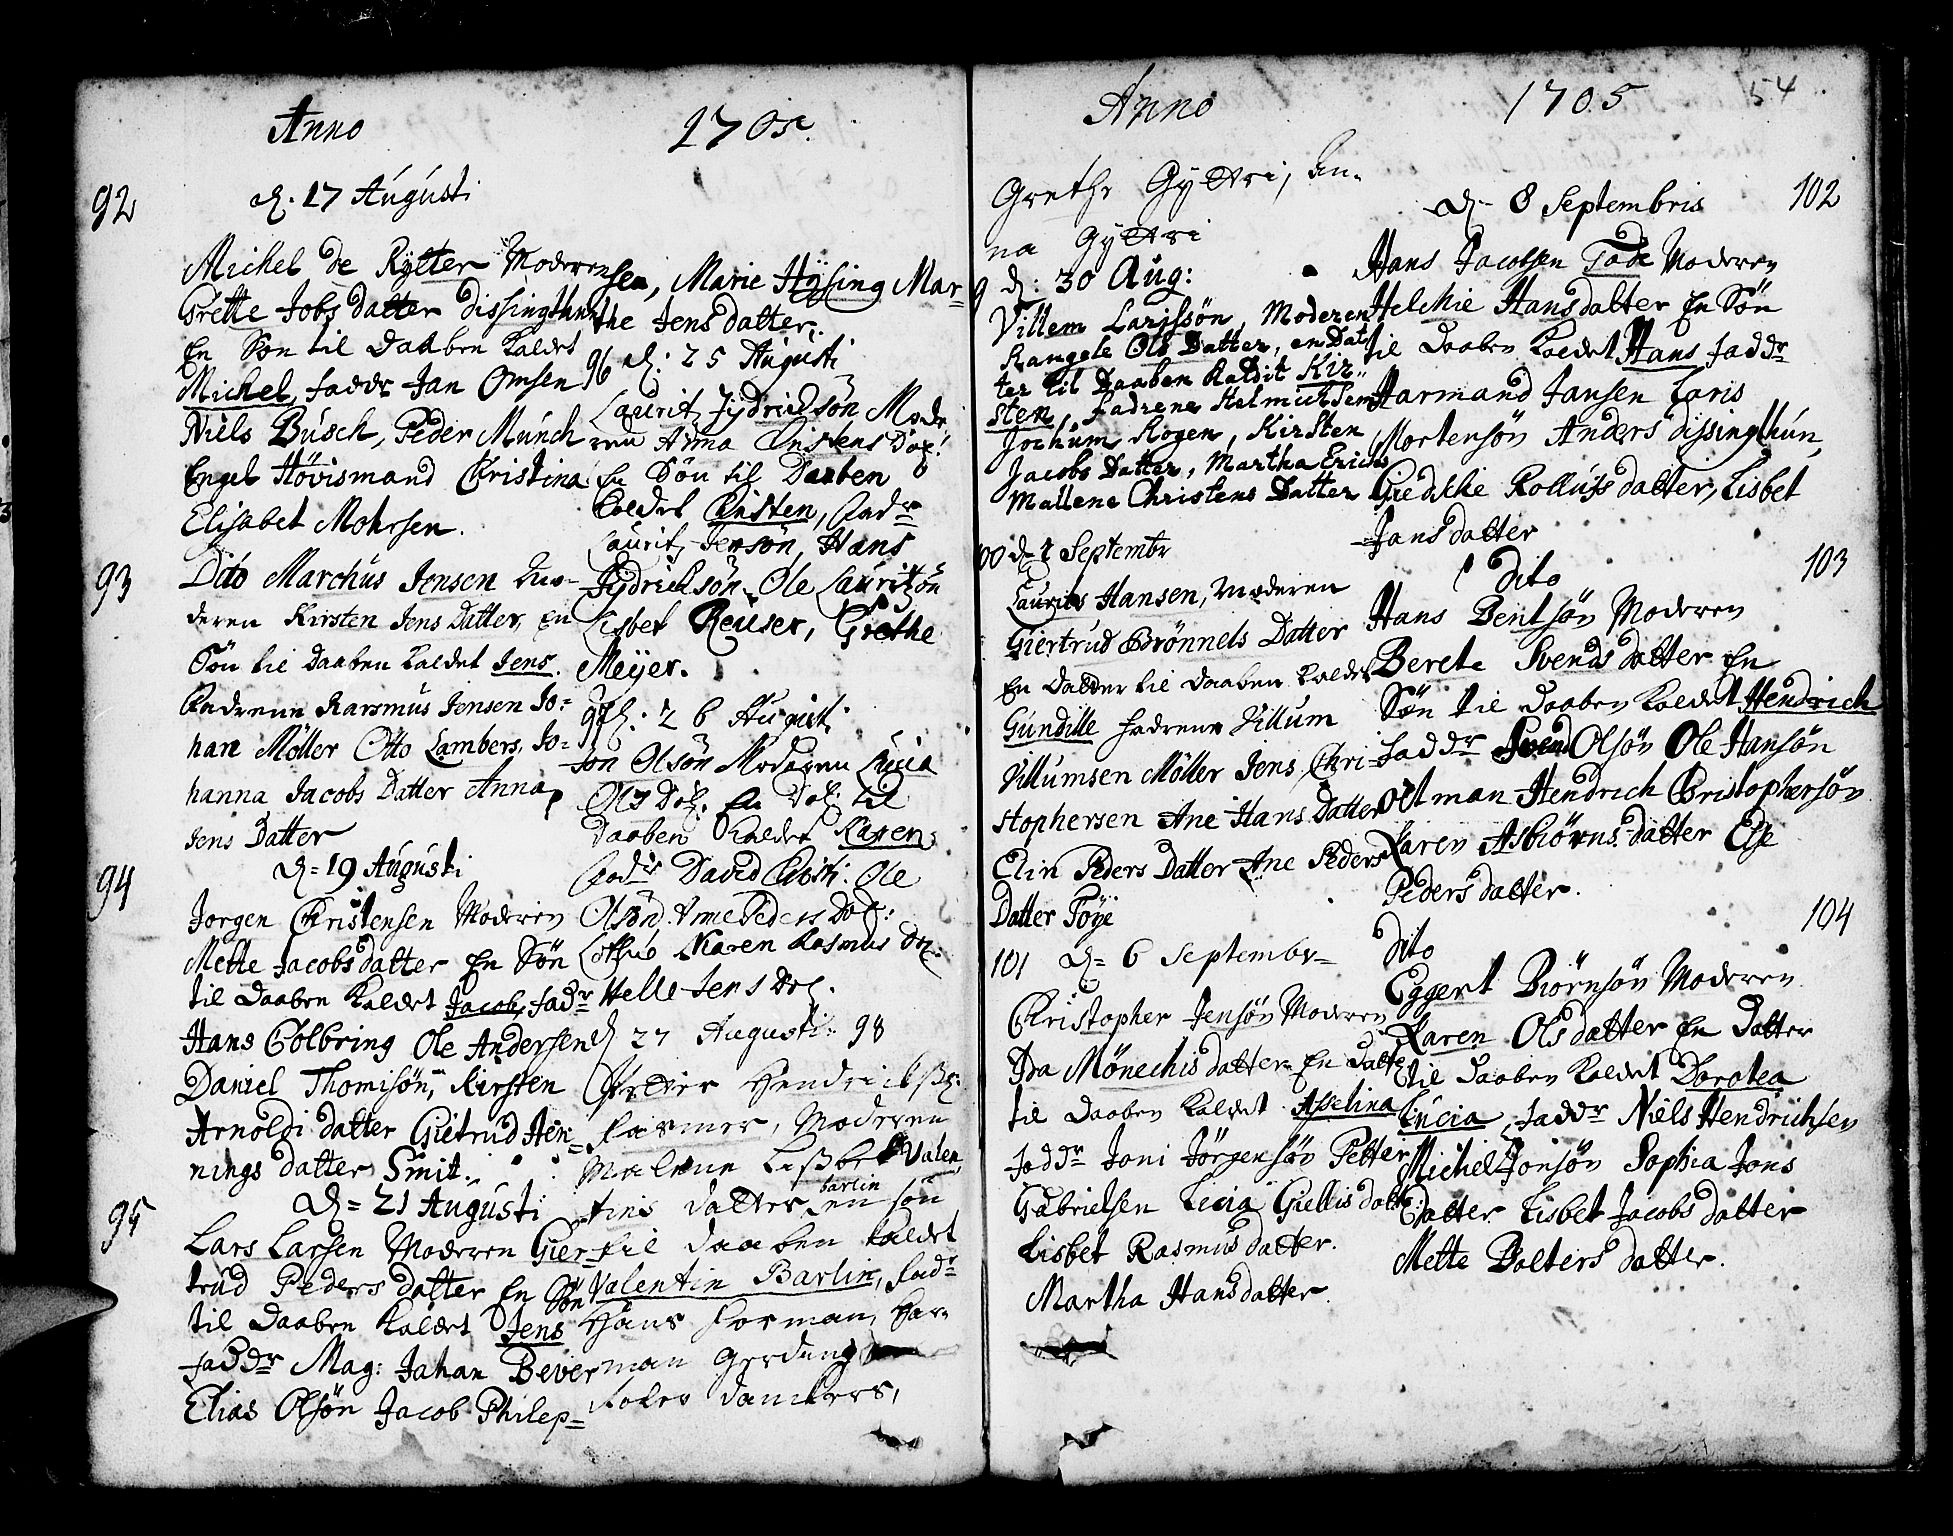 Anno 1705.
92
d. 17 Augusti
Michel de Rÿtter Moderen
Grette Jobs datter dissingthun
En Søn til Daaben kaldet
Michel, faddr Jan Omsen
Niels Busch, Peder Münch
Engel Hövismand Christina
Elisabet Mohrsen.
93
Dito Marchus Jensen Mo-
deren Kirsten Jens Datter, En
Søn til Daaben kaldet Jens.
Fadrene Rarsmus Jensen Jo-
han Möller Otto Lambers, Jo-
hanna Jacobs Datter Anna
Jens Datter
94
d = 19 Augusti
Jörgen Christensen Moderen
Mette Jacobs datter En Søn
til Daaben kaldet Jacob, fadr
Hans Colbring Ole Andersen
Daniel Thomisön, Kirsten
Arnoldi datter Gietrud Hen-
nings datter Smit.
95
d = 21 Augusti
Lars Larsen Moderen Gier-
trud Peders datter En Søn
til Daaben kaldet Jens
faddr Mag: Johan Bever
Elias Olsön Jacob Philep-
sen, Marie Hÿsing Mar-
the Jens datter.
96 d: 25 Augusti
Laurit Fridrichsön Mode
ren Anna Christens Dat:
En Søn til Daaben
kaldet Christen, Fadr
Laurit Jensön, Hans
Fridrichsön Ole Lauritzön
Lisbet Reuser, Grethe
Meÿer.
97 d: 26 August.
Jon Olsön Moderen Lucia
Ols Dat. En Dat: til
Daaben kaldet Karen.
Fadr David Christi: Ole
Olsön. Anne Peders Dat:
Karen Rasmus Dat.
Helle Jens Dat.
d 27 Augusti: 98
Petter Hendrichs:
farmer, Moderen
Malene Lisbet Valen
tins datter en søn
barlin
til daaben kaldet
Valentin Barlin, fadr
Hans forman, Har-
man Gerdung
danckers,
Anno 1705 54
Grethe Gÿttri, An-
na Gÿttri
9 d: 30 Aug:
Villem Larssön, Moderen
Rangele Ols Datter, en Dat
ter til Daaben kaldit Kir-
sten, Fadrene Helmichsem
Jochum Rogen, Kirsten
Jacobs Datter, Martha Erichs
Mallene Christens Datter
00 d. 1 Septembr
Laurits Hansen, Moderen
Giertrud Brönnels Datter
En Datter til Daaben kaldet
Gundille Fadrene Villum
Villumsen Möller Jens Chri-
stophersen Ane Hans Datter
Elin Peders Datter Ane Peders
Datter Föÿe
101 d = 6 Septembr=
Christopher Jensön Moderen
Ida Mönechis datter En Datte
til Daaben kaldet Asselina
faddr Joni Jörgensön Petter
Gabrielsen Lecia Giellis datter
Lisbet Rasmus datter.
Martha Hans datter.
d = 8 Septembris 102
Hans Jacobsen Tode Moderen
Helchie Hansdatter En Søn
til Daaben kaldet Hans faddr
Harmand Jansen Laris
Mortensön Anders dissingthun,
Giedskie Rollufs datter, Lisbet
Jans datter
dito 103
Hans Bentsön Moderen
Berete Svends datter En
Søn til Daaben kaldet Hendrich
faddr Svend Olsön Ole Hansön
Oltman Hendrich Christophersön
Karen Asbiörns datter Else
Peders datter.
104
dito
Eggert Biörnsön Moderen
Karen Ols datter En Datter
til Daaben kaldet Dorotea
Lucia, faddr Niels Hendrichsen
Michel Jonsön Sophia Jons
datter Lisbet Jacobs datter
Mette Bolters datter.